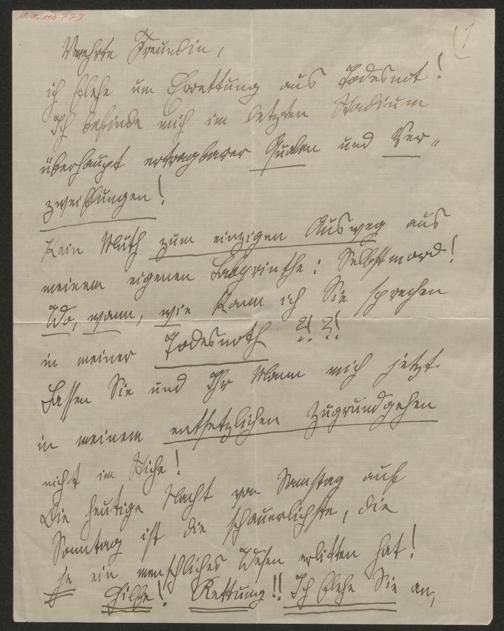 Verehrte Freundin,
ich flehe um Errettung aus Todesnot!
Ich befinde mich im letzten Stadium
überhaupt ertragbarer Qualen und Ver-
zweiflungen!
Kein Muth zum einzigen Ausweg aus
meinem eigenen Labyrinthe: Selbstmord!
Wo, wann, wie kann ich Sie sprechen
in meiner Todesnoth ?!?!
Lassen Sie und Ihr Mann mich jetzt
in meinem entsetzlichen Zugrundgehen
nicht im Stiche!
Die heutige Nacht von Samstag auf
Sonntag ist die schauerlichste, die
je ein menschliches Wesen erlitten hat!
Hilfe! Rettung!! Ich flehe Sie an,